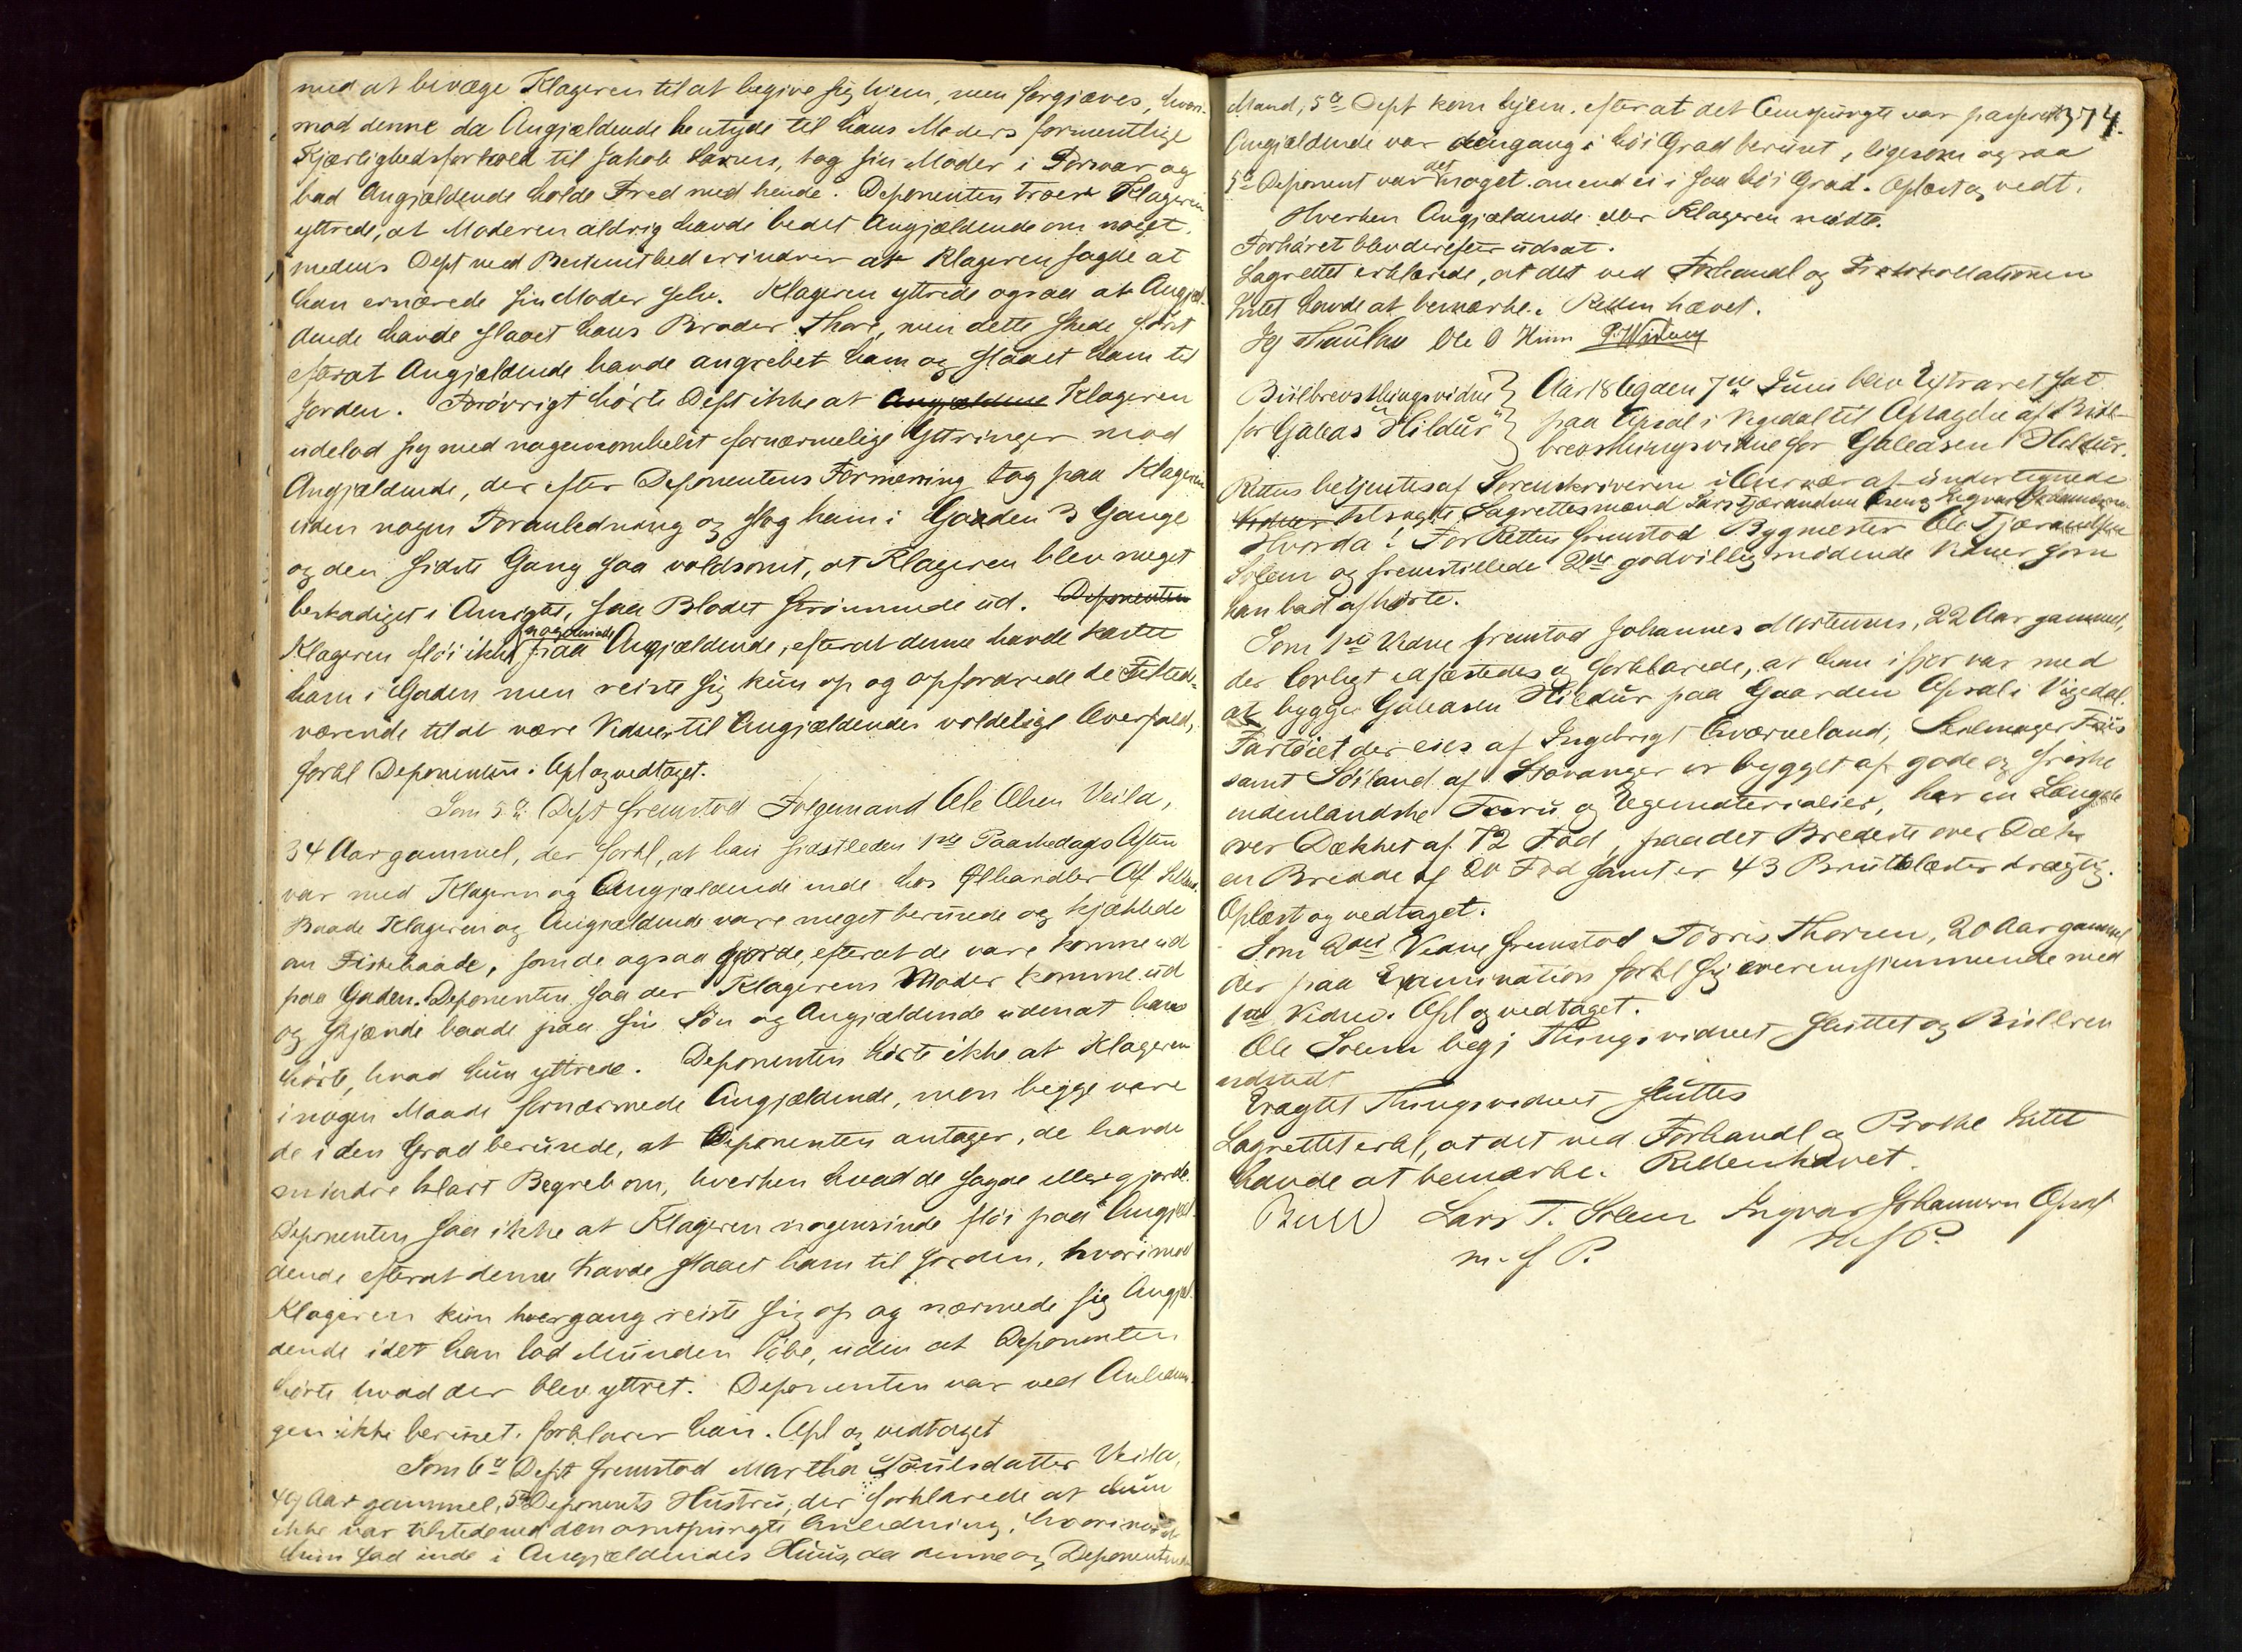 med at bevæge Klageren til at begive sig hjem, men forgjæves, hvori-
mod denne da Angjældende hentyde til hans Moders formentlige
Kjærlighedsforhold til Jakob tog sin Moder i Forsvar og
bad Angjældende holde Fred med hende. Deponenten troer Klageren
yttrede, at Moderen aldrig havde bedet Angjældende om noget,
medens Dept med Bestemthed erindrer at Klageren sagde at
han ernærede sin Moder selv. Klageren yttrede ogsaa at Angjæl-
dende havde slaaet hans Broder Thore, men dette skede først
efterat Angjældende havde angrebet ham og slaaet ham til
Jorden. Forøvrigt hørte Dept ikke at Angjældene Klageren
udelod sig med nogensomhelst fornærmelige Yttringer mod
Angjældende, der efter Deponentens Formening tog paa Klageren
uden nogen Foranledning og slog ham i Gaden 3 Gange
og den sidste Gang saa voldsomt, at Klageren blev meget
beskadiget i Ansigtet, saa Blodet strømmede ud. Deponenten
Klageren sloi ikke nogensinde paa Angjældende, efterat denne havde kastet
ham i Gaden men reiste sig kun op og opfordrede de Tilsted-
værende til at være Vidner til Angjældendes voldelige Overfald,
forkl Deponenten. Opl og vedtaget.
Som 5te Dept fremstod Ole Olsen Veila,
34 Aar gammel, der forkl, at han sidstleden 1ste Paaskedags Aften
var med Klageren og Angjældende inde hos Ølhandler
Baade Klageren og Angjældende vare meget berusede og kjæklede
om Fiskebaade, som de ogsaa gjorde, efterat de vare komne ud
paa Gaden. Deponenten saa der Klagerens Moder komme ud
og skjænde baade paa sin Søn og Angjældende uden at han
hørte, hvad hun yttrede. Deponenten hørte ikke at Klageren
i nogen Maade fornærmede Angjældende, men begge vare
de i den Grad berusede, at Deponenten antager, de havde
mindre klart Begreb om, hverken hvad de sagde eller gjorde.
Deponenten saa ikke at Klageren nogensinde sloi paa Angjæl-
dende efterat denne havde slaaet ham til Jorden, hvorimod
Klageren kun hvergang reiste sig op og nærmede sig Angjæl-
dende idet han lod Munden løbe, uden at Deponenten
hørte hvad der blev yttret. Deponenten var ved Anlednin-
gen ikke beruset, forklarer han. Opl og vedtaget
Som 6te Dept fremstod Martha Poulsdatter Veila,
49 Aar gammel, 5te Deponents Hustru, der forklarede at hun
ikke var tilstede ved den omspurgte Anledning, hvorimod
hun sad inde i Angjældendes Huus, da denne og Deponentens
Mand, 5te Dept kom hjem, efter at det Omspurgte var passeret. 374.
Angjældende var dengang i høi Grad beruset, ligesom ogsaa
5te Deponent var det noget, omend ei i saa høi Grad. Oplæst og vedt.
Hverken Angjældende eller Klageren mødte.
Forhøret blev derefter udsat.
Lagrettet erklærede, at det ved Forhandl og Protokollationen
Intet havde at bemærke. Retten hævet.
Ole O
Biilbrevsthingsvidne } Aar 1869 den 7de Juni blev Extraret sat
for Galeas "Hildur" } paa Opsal i Vigedal til Optagelse af Biil-
brevsthingsvidne for Galeasen Hildur.
Retten betjentes af Sorenskriveren i Overvær af undertegnede
Vidner tilsagte Lagrettesmænd Lars Tjærandsen og Ingvar
Hvorda! For Retten fremstod Bygmester Ole Tjærandsen
Solem og fremstillede 2de godvillig mødende Vidner som
han bad afhørte.
Som 1ste Vidne fremstod Johannes Mortensen, 22 Aar gammel,
der lovligt edfæstedes og forklarede, at han ifjor var med
at bygge Galeasen Hildur paa Gaarden Opsal i Vigedal.
Fartøiet der eies af Ingebrigt Qværneland, Seilmager Friis
samt Söiland af Stavanger er bygget af gode og friske
indenlandske Furu og Egematerialier, har en Længde
over Dækket af 72 Fod, paa det Bredeste over Dæk
en Bredde af 20 Fod samt er 43 Bruttolæster drægtig.
Oplæst og vedtaget.
Som 2det Vidne fremstod Torris Thorsen, 20 Aar gammel
der paa Examination forkl sig overensstemmende med
1ste Vidne. Opl og vedtaget.
Ole Solem begj Thingsvidnet sluttet og Biilbrev
udstedt
Eragtet Thingsvidnet sluttes
Lagrettet erkl, at det ved Forhandl og Protke Intet
havde at bemærke. Retten hævet.
Bull Lars T. Solem Ingvar Johannesen Opsal
m. f P. m f P.